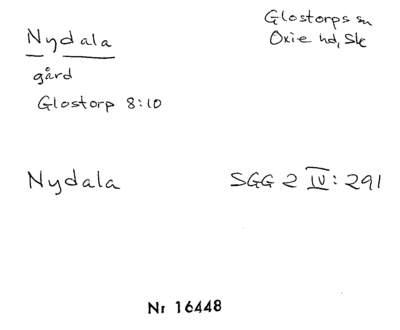 Nydala
Glostorps sn
Oxie hd, Sk
gård
Glostorp 8:10
Nydala
SGG 2 IV: 291
Nr 16448